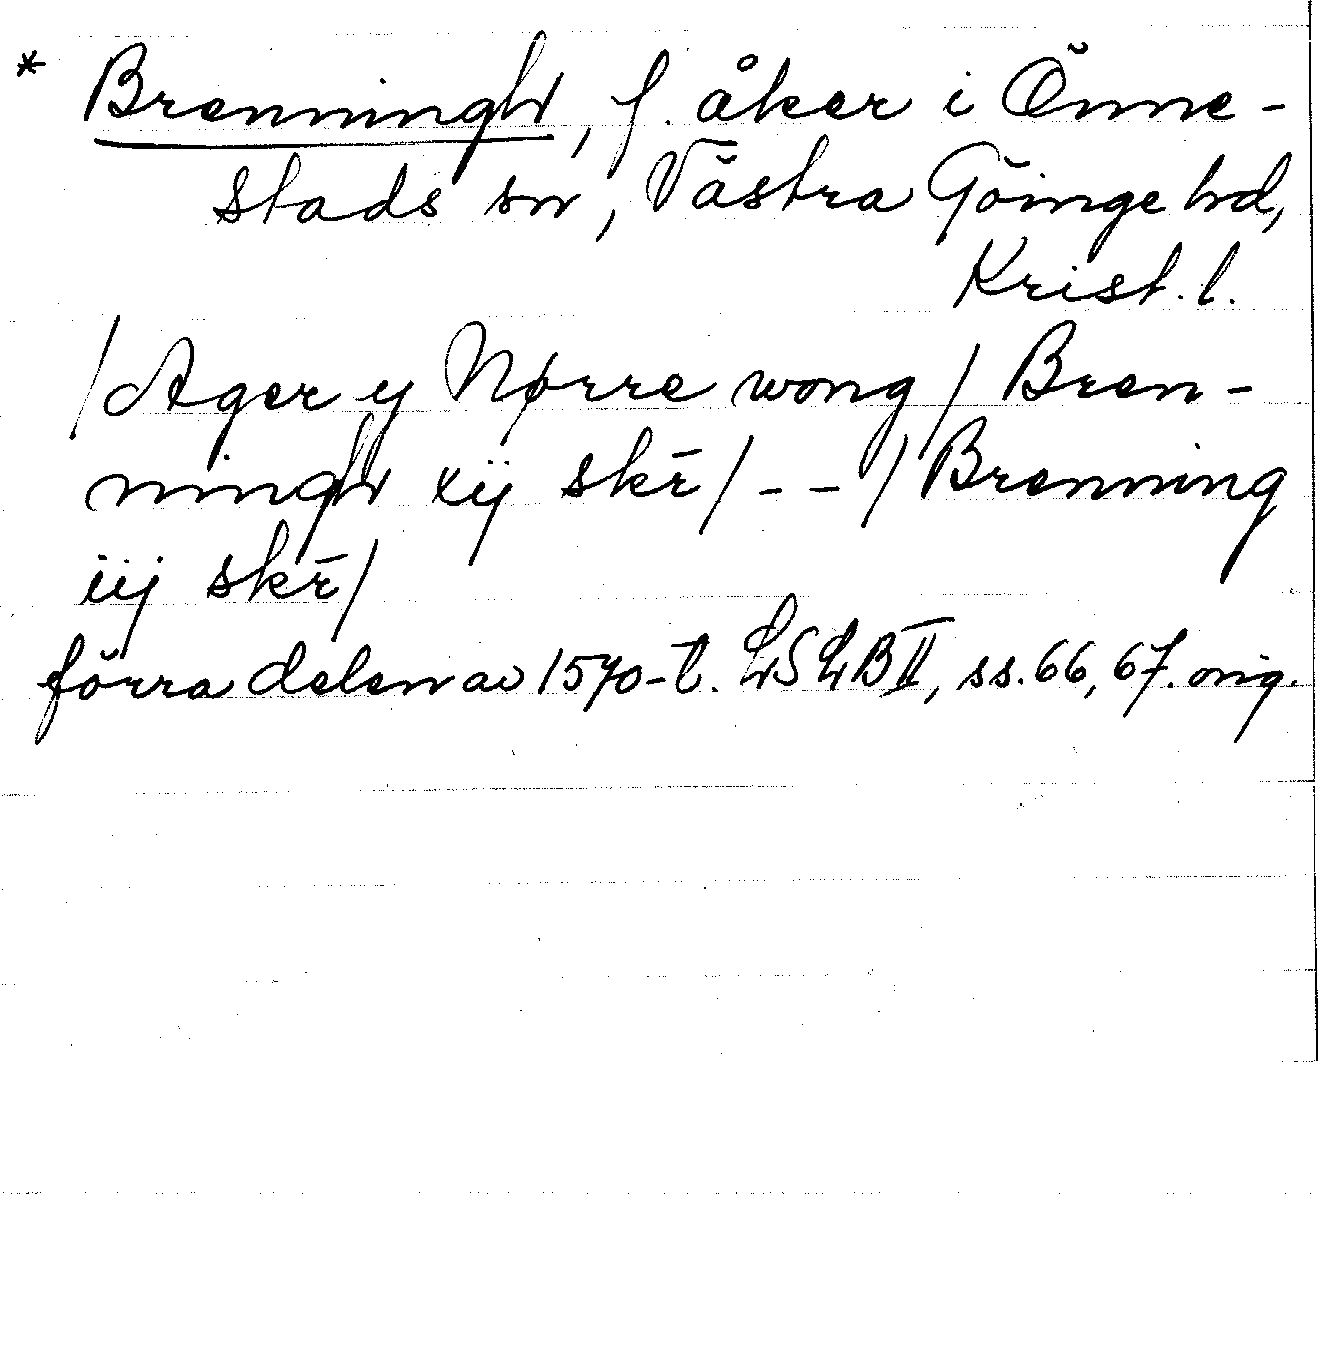 * Brenningh, f. åker i Önne-
stads sn, Västra Göinge hd,
Krist. l.
/Ager y Nørre wong/ Bren-
ningh xij skr̄/ - - / Brenning
iij skr̄/
förra delen av 1570-t. LSLB II, ss. 66, 67. orig.